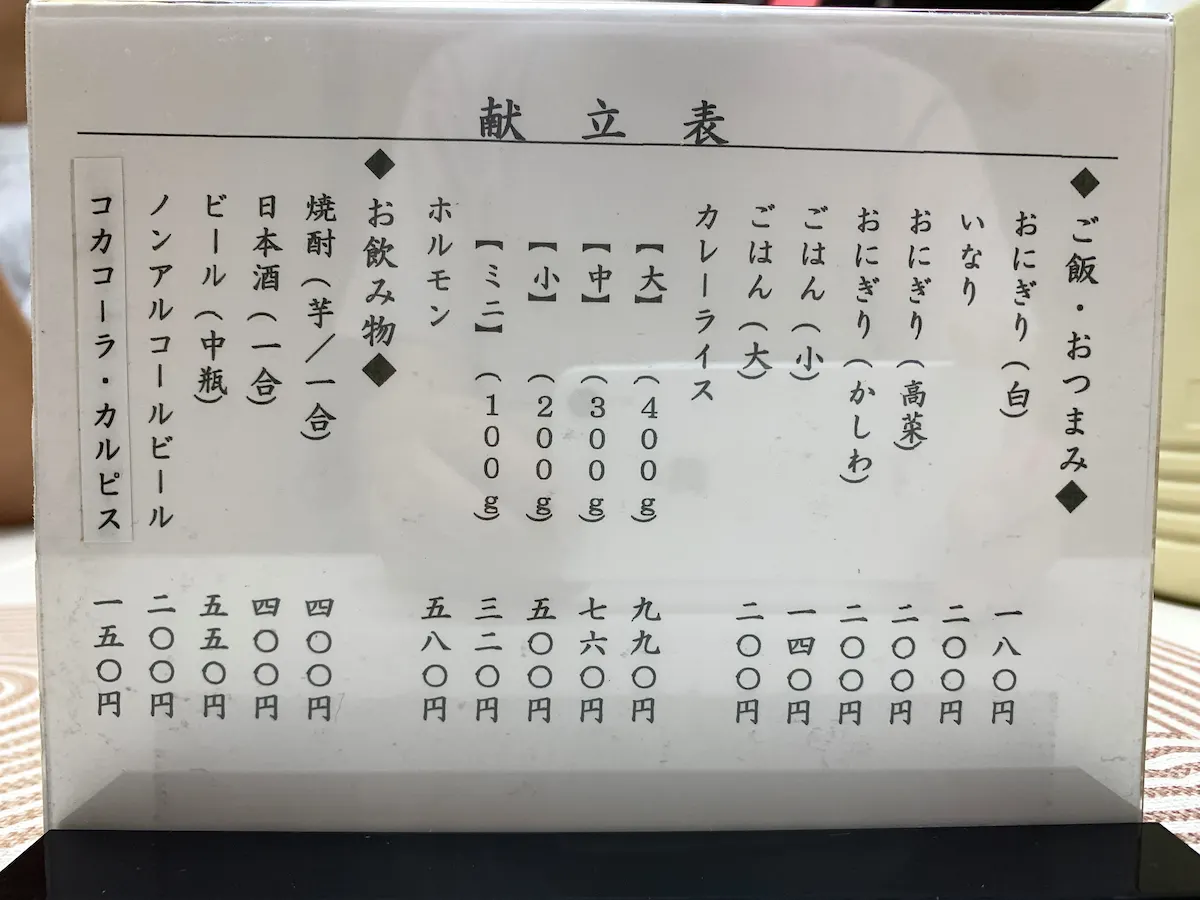 献立表
◆ご飯・おつまみ◆
おにぎり(白) 一八〇円
いなり 二〇〇円
おにぎり(高菜) 二〇〇円
おにぎり(かしわ) 二〇〇円
ごはん(小) 一四〇円
ごはん(大) 二〇〇円
カレーライス
【大】(400g) 九九〇円
【中】(300g) 七六〇円
【小】(200g) 五〇〇円
【ミニ】(100g) 三二〇円
ホルモン 五八〇円
◆お飲み物◆
焼酎(芋/一合) 四〇〇円
日本酒(一合) 四〇〇円
ビール(中瓶) 五五〇円
ノンアルコールビール 二〇〇円
コカコーラ・カルピス 一五〇円